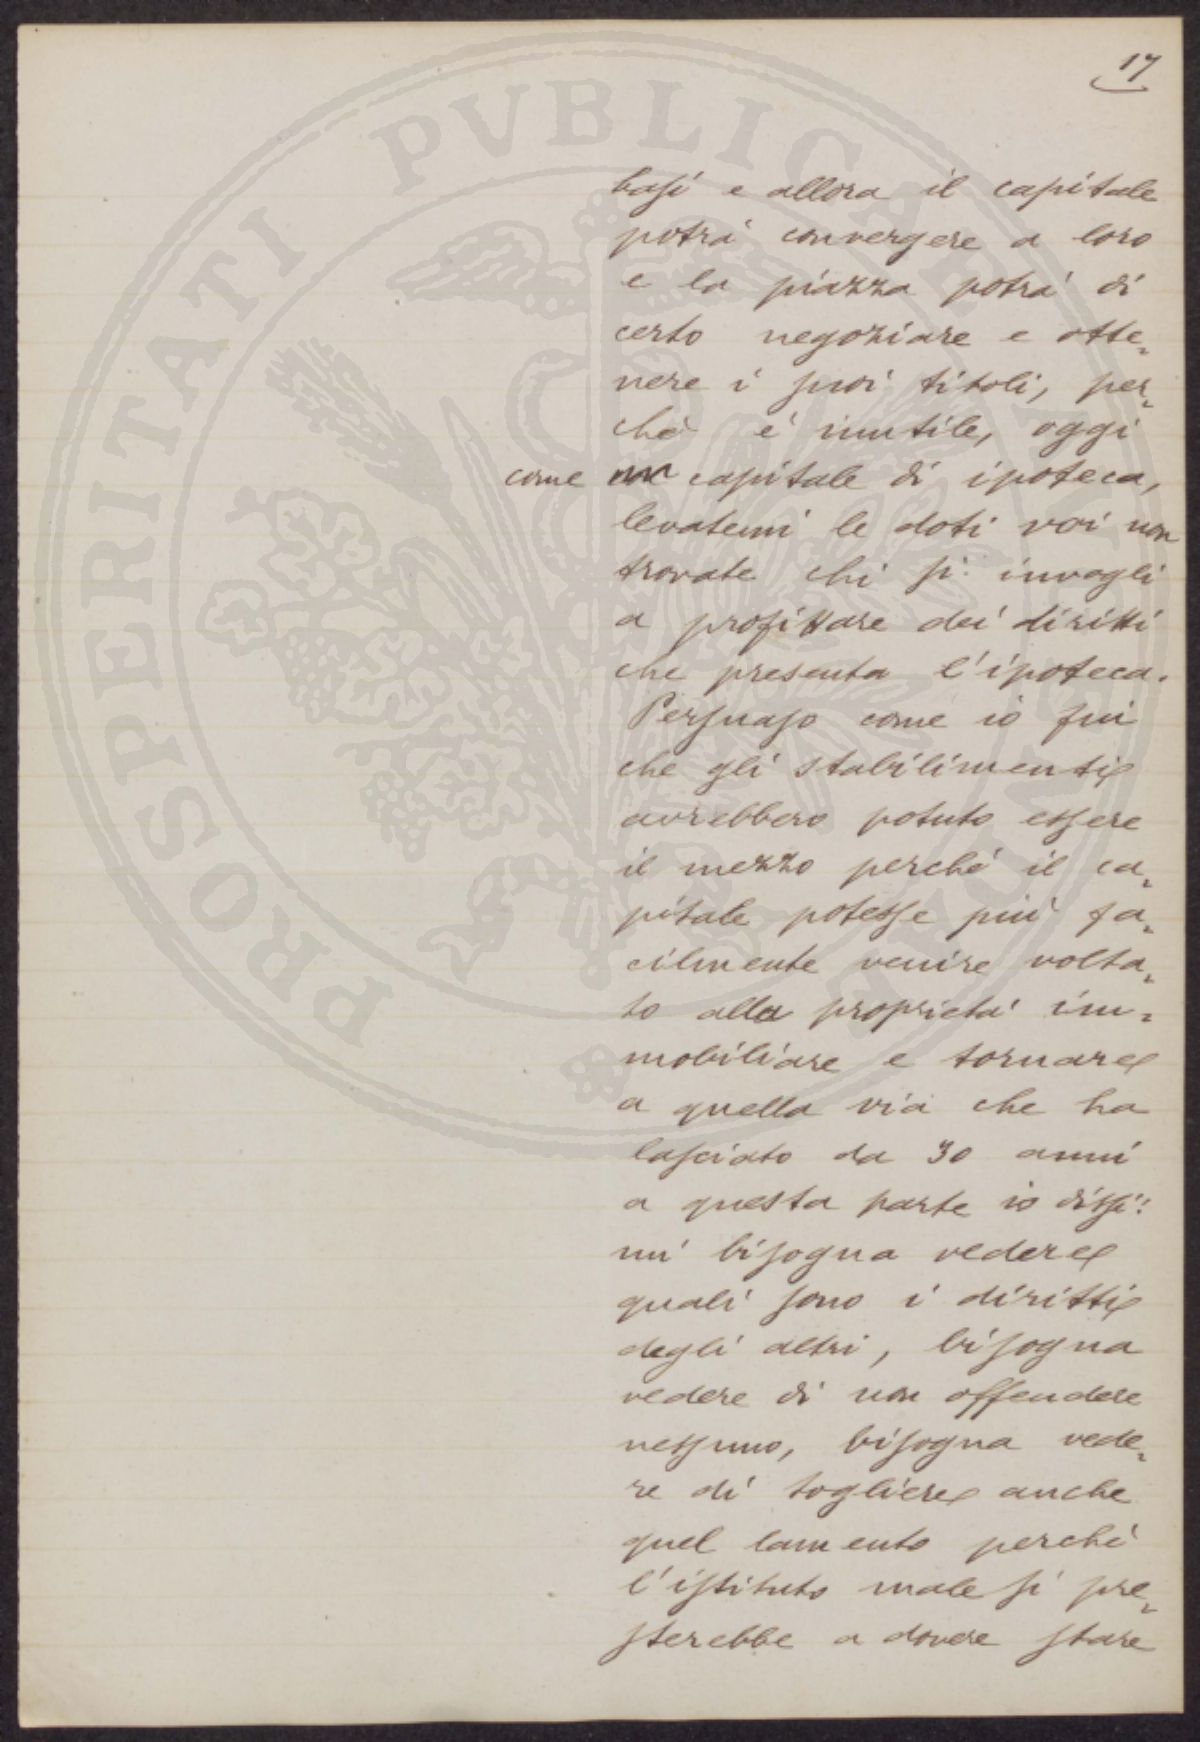 17
basi e allora il capitale
potrà convergere a loro
e la piazza potrà di
certo negoziare e otte-
nere i suoi titoli, per-
chè è inutile, oggi
come un capitale di ipoteca,
levatemi le doti voi non
trovate chi si invogli
a profittare dei diritti
che presenta l'ipoteca.
Persuaso come io fui
che gli stabilimenti
avrebbero potuto essere
il mezzo perchè il ca-
pitale potesse più fa-
cilmente venire volta-
to alla proprietà im-
mobiliare e tornare
a quella via che ha
lasciato da 30 anni
a questa parte io dissi:
mi bisogna vedere
quali sono i diritti
degli altri, bisogna
vedere di non offendere
nessuno, bisogna vede-
re di togliere anche
quel lamento perchè
l'istituto male si pre-
sterebbe a dovere stare
PROSPERITATI PVBLICAE AVGENDAE